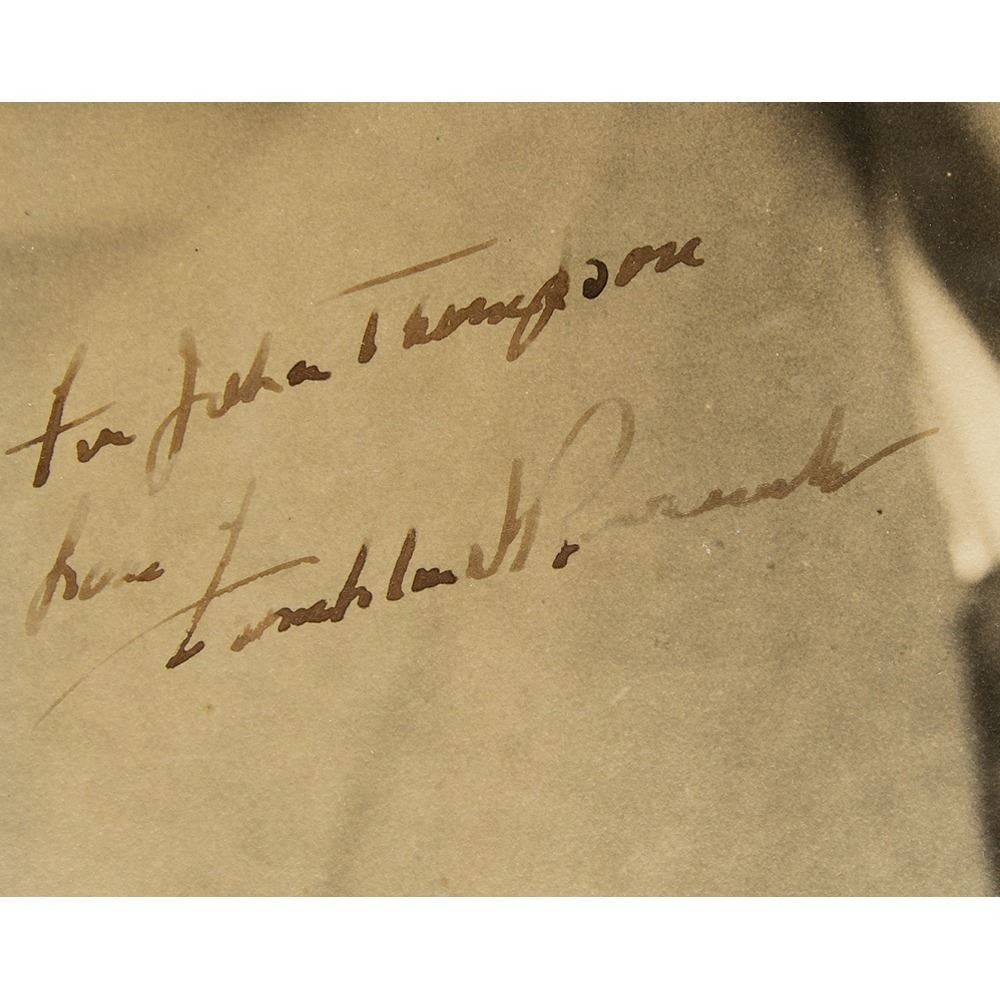 For John Thompson
from Franklin D. Roosevelt